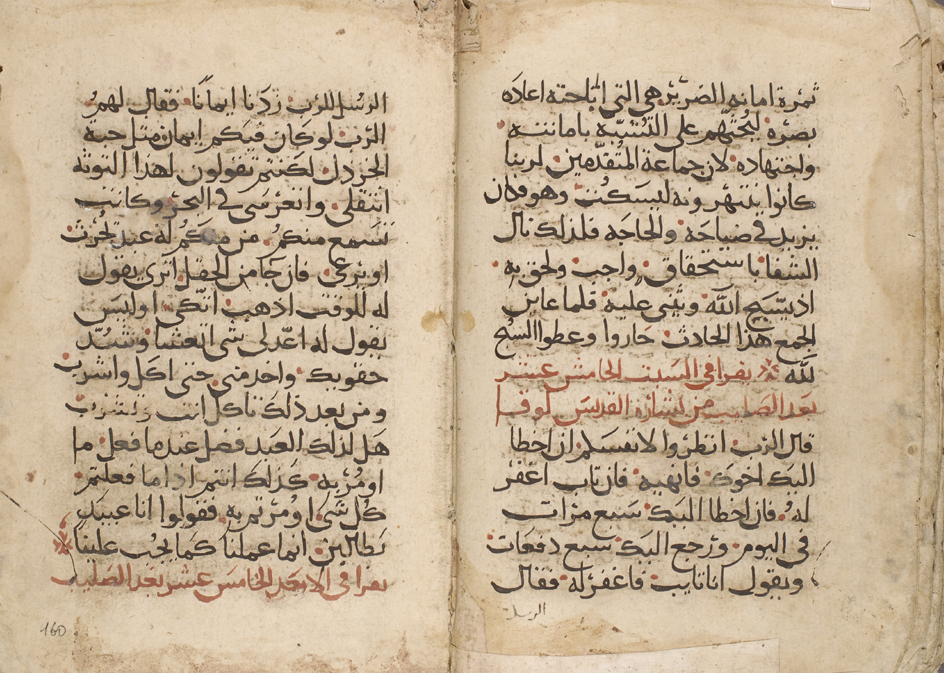 ثمرة امانه الضرير هي التي اباحته اعاده
بصره ليحثهم على التشبه بامانته
واجتهاده لان جماعة المتقدمين لربنا
كانوا ينتهرونه ليسكت وهو فكان
يزيد في صياحه والحاجه فلذلك نال
الشفا باستحقاق واجب ولحق به
اذ يسبح الله ويثني عليه فلما عاين
الجمع هذا الحادث حاروا وعطوا السبح
لله يقرا في السبت الخامس عشر
بعد الصليب من بشارة القديس لوقا
قال الرب انظروا لانفسكم ان اخطا
اليك اخوك فانهيه فان تاب اغفر
له فان اخطا اليك سبع مرات
في اليوم ورجع اليك سبع دفعات
ويقول انا تايب فاغفر له فقال
الرسل
الرسل للرب زدنا ايمانا فقال لهم
الرب لو كان فيكم ايمان مثل حبة
الخردل لكنتم تقولون لهذا التوته
انتقلي وانغرسي في البحر وكانت
تسمع منكم من منكم له عبد يحرث
او يرعى فان جا من الحقل اترى يقول
له للوقت اذهب اتكي اوليس
يقول له اعد لي شي اتعشا وشد
حقويك واخدمني حتى اكل واشرب
ومن بعد ذلك تاكل انت وتشرب
هل لذلك العبد فضل عندما فعل ما
اومر به كذلك انتم اذا ما فعلتم
كل شي اومرتم به فقولوا انا عبيد
بطالين انما عملنا كما يجب علينا
يقرا في الاحد الخامس عشر بعد الصليب
160